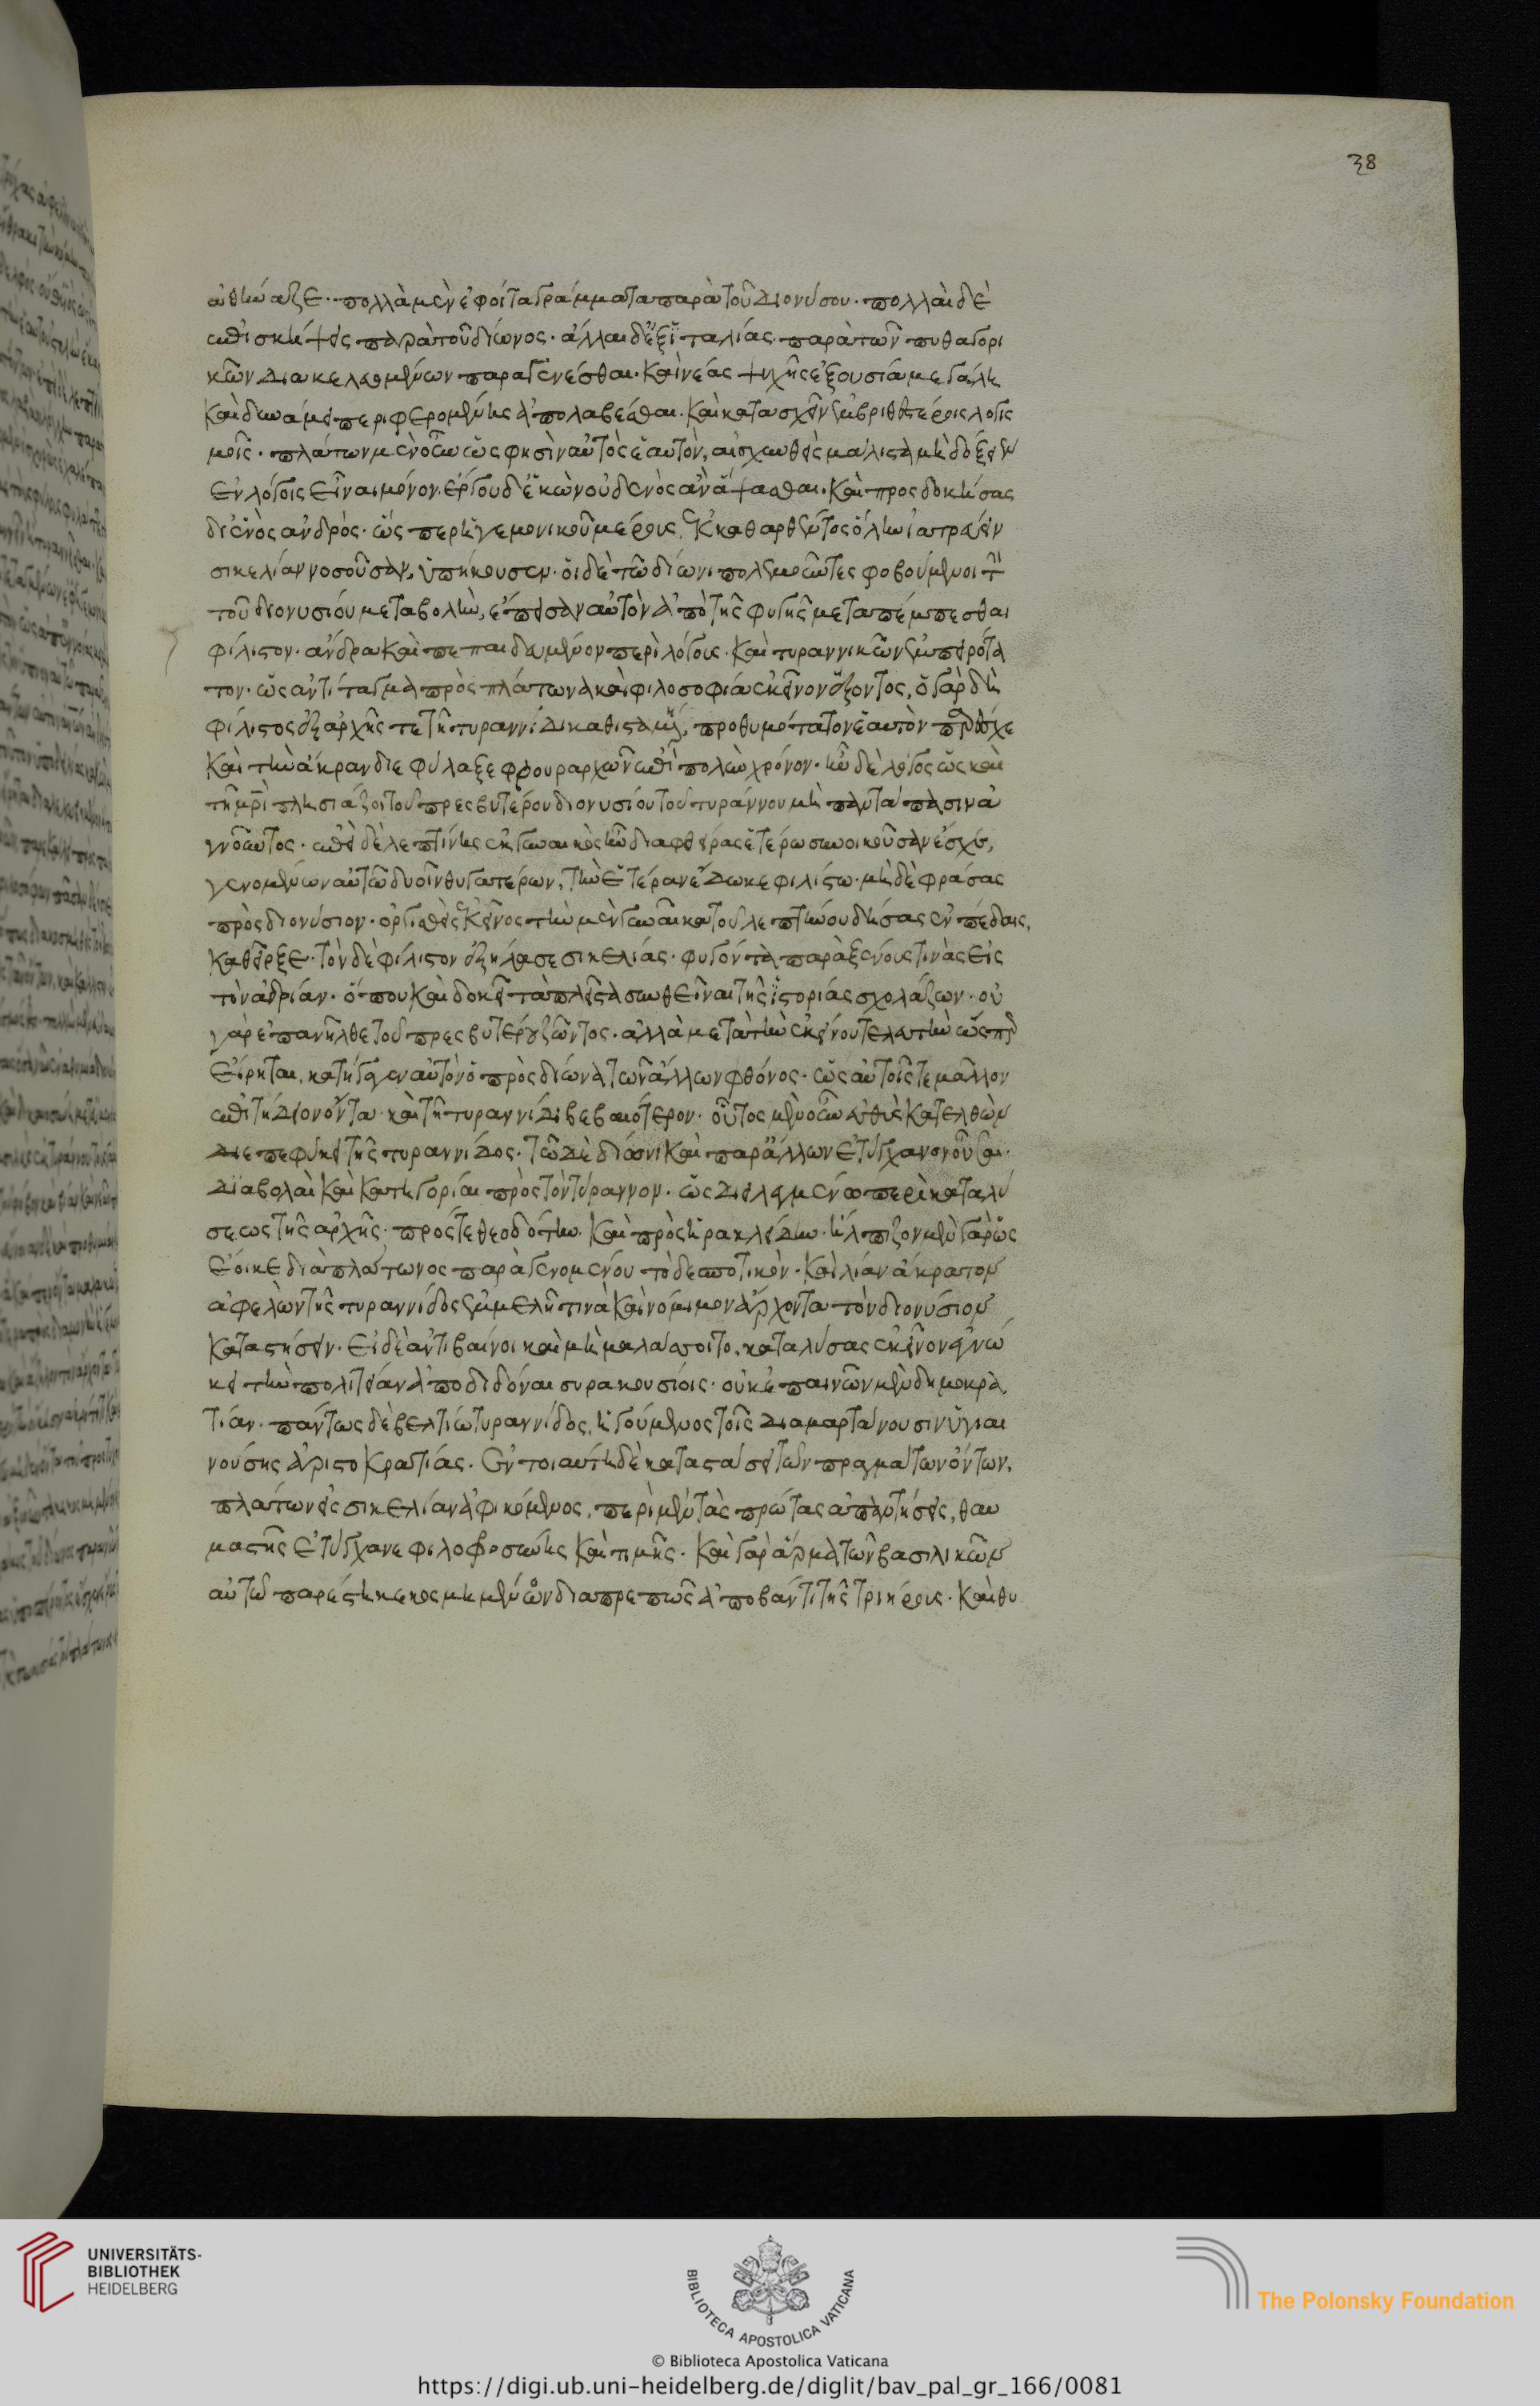 ἀθήναζε· πολλὰ μὲν ἐφοίτα γράμματα παρὰ τοῦ διονύσου· πολλαὶ δὲ
ἐπισκήψεις παρὰ τοῦ δίωνος· ἄλλαι δ' ἐξ ἰταλίας παρὰ τῶν πυθαγορι
κῶν διακελευομένων παραγενέσθαι· καὶ νέας ψυχῆς ἐξουσία μεγάλη
καὶ δυνάμει περιφερομένης ἀπολαβέσθαι· καὶ κατασχεῖν ἐμβριθεστέροις λογις
μοῖς· πλάτων μὲν οὖν ὥς φησὶν αὐτὸς ἑαυτὸν, αἰσχυνθεὶς μάλιστα μὴ δόξειεν
ἐν λόγοις εἶναι μόνον· ἔργου δ' ἑκὼν οὐδενὸς ἂν ἅψασθαι· καὶ προσδοκήσας
δι' ἑνὸς ἀνδρὸς· ὥσπερ ἡγεμονικοῦ μέρους ἐκκαθαρθέντος ὅλην ἰατρεύειν
σικελίαν νοσοῦσαν, ὑπήκουσεν· οἱ δὲ τῶ δίωνι πολεμοῦντες φοβούμενοι τὴν
τοῦ διονυσίου μεταβολὴν, ἔπεισαν αὐτὸν ἀπὸ τῆς φυγῆς μεταπέμπεσθαι
φίλιστον· ἄνδρα καὶ πεπαιδευμένον περὶ λόγους· καὶ τυραννικῶν ἐμπειρότα
τον· ὡς ἀντίταγμα πρὸς πλάτωνα καὶ φιλοσοφίαν ἐκεῖνον ἕξοντες, ὁ γὰρ δὴ
φίλιστος ἐξ ἀρχῆς τε τῆ τυραννίδι καθισταμένη, προθυμότατον ἑαυτὸν παρέσχε
καὶ τὴν ἄκραν διεφύλαξε φρουραρχῶν ἐπὶ πολὺν χρόνον· ἦν δὲ λόγος ὡς καὶ
τῆ μητρὶ πλησιάζοι τοῦ πρεσβυτέρου διονυσίου τοῦ τυράννου μὴ παντάπασιν ἀ
γνοοῦντος· ἐπεὶ δὲ λεπτίνης ἐκ γυναικὸς ἣν διαφθείρας ἑτέρω συνοικοῦσαν ἔσχε,
γενομένων αὐτῶ δυοῖν θυγατέρων, τὴν ἑτέραν ἔδωκε φιλίστω· μὴ δὲ φράσας
πρὸς διονύσιον· ὀργισθεὶς ἐκεῖνος τὴν μὲν γυναῖκα τοῦ λεπτίνου δήσας ἐν πέδαις,
καθεῖρξε· τὸν δὲ φίλιστον ἐξήλασε σικελίας· φυγόντα παρὰ ξένους τινὰς εἰς
τὸν ἀδρίαν· ὅπου καὶ δοκεῖ τὰ πλεῖστα συνθεῖναι τῆς ἱστορίας σχολάζων· οὐ
γὰρ ἐπανῆλθε τοῦ πρεσβυτέρου ζῶντος· ἀλλὰ μετὰ τὴν ἐκείνου τελευτὴν ὥσπερ
εἴρηται, κατήγαγεν αὐτὸν ὁ πρὸς δίωνα τῶν ἄλλων φθόνος· ὡς αὐτοῖς τε μᾶλλον
ἐπιτήδειον ὄντα· καὶ τῆ τυραννίδι βεβαιότερον· οὗτος μὲν οὖν εὐθὺς κατελθὼν
διεπεφύκει τῆς τυραννίδος· τῶ δὲ δίωνι καὶ παρ' ἄλλων ἐτύγχανον οὖσαι·
διαβολαὶ καὶ κατηγορίαι πρὸς τὸν τύραννον· ὡς διειλεγμένω περὶ καταλύ
σεως τῆς ἀρχῆς· πρός τε θεοδότην· καὶ πρὸς ἡρακλείδην· ἤλπιζον μὲν γὰρ ὡς
ἔοικε διὰ πλάτωνος παραγενομένου τὸ δεσποτικὸν· καὶ λίαν ἄκρατον
ἀφελὼν τῆς τυραννίδος ἐμμελῆ τινὰ καὶ νόμιμον ἄρχοντα τὸν διονύσιον
καταστήσειν· εἰ δὲ ἀντιβαίνοι καὶ μὴ μαλάσσοιτο, καταλύσας ἐκεῖνον ἐγνώ
κει τὴν πολιτείαν ἀποδιδόναι συρακουσίοις· οὐκ ἐπαινῶν μὲν δημοκρα
τίαν· πάντως δὲ βελτίω τυραννίδος, ἡγούμενος τοῖς διαμαρτάνουσιν ὑγιαι
νούσης ἀριστοκρατίας· Ἐν τοιαύτη δὲ καταστάσει τῶν πραγμάτων ὄντων,
πλάτων εἰς σικελίαν ἀφικόμενος, περὶ μὲν τὰς πρώτας ἀπαντήσεις, θαυ
μαστῆς ἐτύγχανε φιλοφροσύνης καὶ τιμῆς· καὶ γὰρ ἅρμα τῶν βασιλικῶν
αὐτῶ παρέστη κεκοσμημένον διαπρεπῶς ἀποβάντι τῆς τριήρους· καὶ θυ
38
UNIVERSITÄTS-
BIBLIOTHEK
HEIDELBERG
BIBLIOTECA APOSTOLICA VATICANA
The Polonsky Foundation
© Biblioteca Apostolica Vaticana
https://digi.ub.uni-heidelberg.de/diglit/bav_pal_gr_166/0081